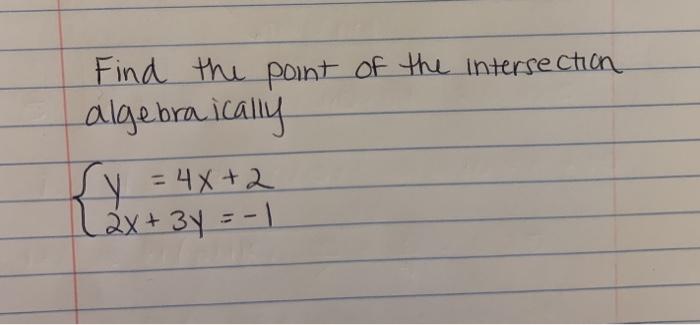 Find the point of the intersection
algebraically
y = 4x + 2
2x + 3y = -1